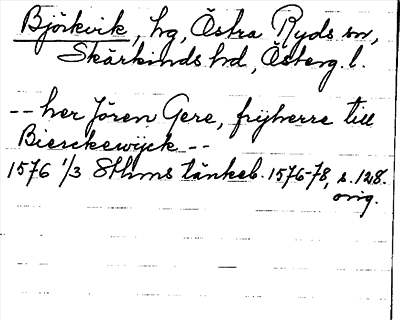 Björkvik, hg, Östra Ryds sn,
Skärkinds hd, Österg. l.
-- her Jören Gere, frijherre till
Bierckewijck --
1576 1/3 Sthms tänkeb. 1576-78, s. 128.
orig.